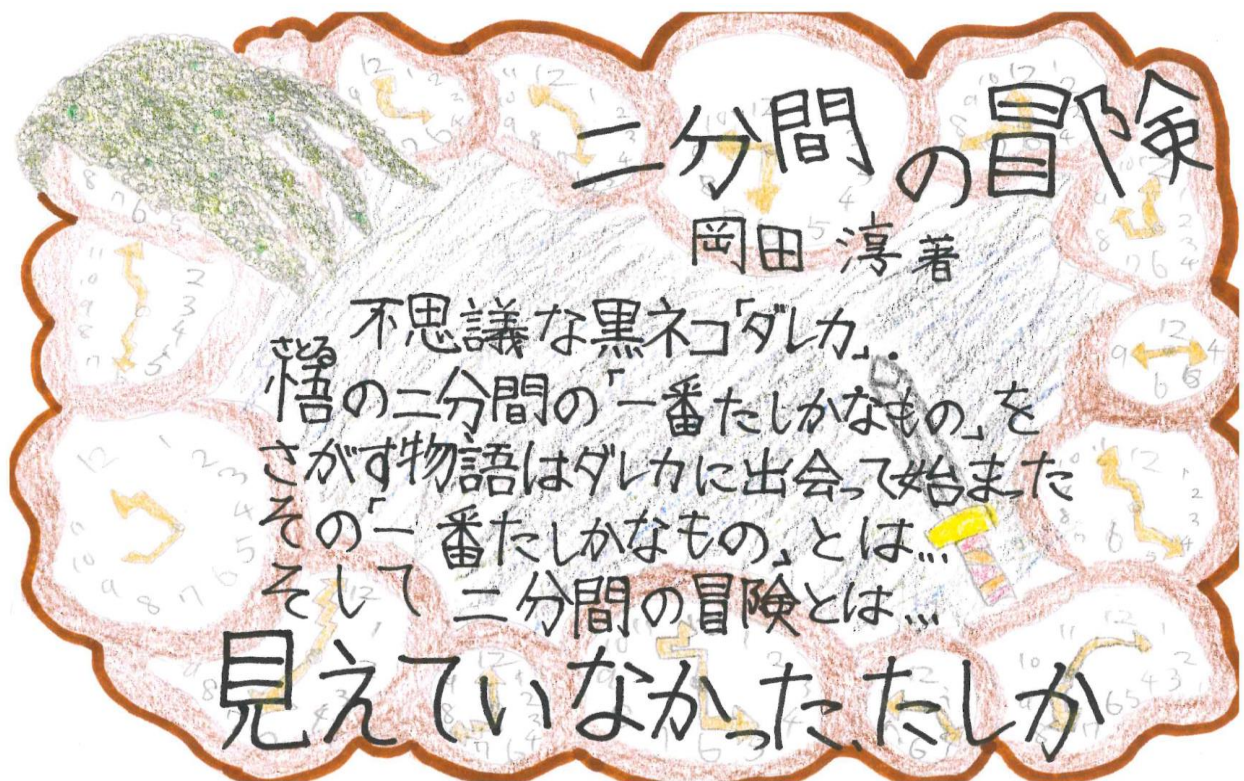 二分間の冒険
岡田 淳 著
不思議な黒ネコ「ダレカ」..
悟の二分間の「一番たしかなもの」を
さとる
さがす物語はダレカに出会って始まった
その「一番たしかなもの」とは...
そして 二分間の冒険とは...
見えていなかった、たしか